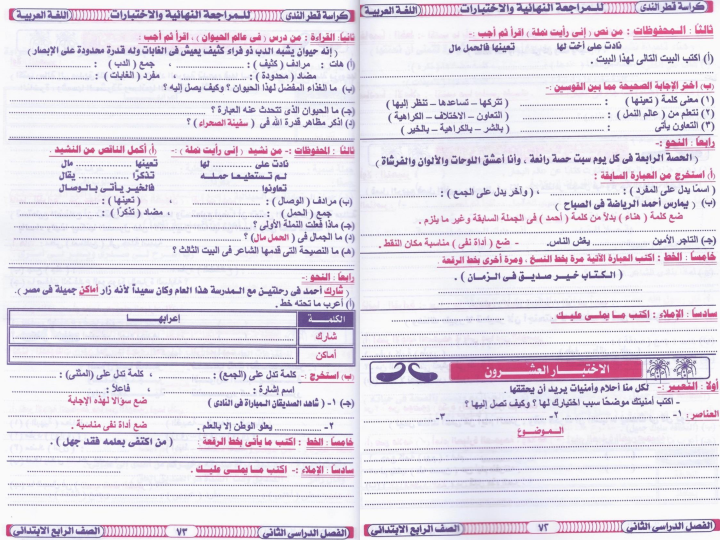 كراسة قطر الندى
للمراجعة النهائية والاختبارات
اللغة العربية
ثالثًا : المحفوظات : من نص ( إني رأيت نملة ) اقرأ ثم أجب :-
نادت على أخت لها تعينها فالحمل مال
(أ) اكتب البيت التالى لهذا البيت .
(ب) اختر الإجابة الصحيحة مما بين القوسين :-
(١) معنى كلمة ( تعينها ) : ( تتركها – تساعدها – تنظر إليها )
(٢) نتعلم من ( عالم النمل ) : ( التعاون – الاختلاف – الكراهية )
(٣) التعاون يأتى : ( بالشر – بالكراهية – بالخير )
رابعًا : النحو :-
( الحصة الرابعة فى كل يوم سبت حصة رائعة ، وأنا أعشق اللوحات والألوان والفرشاة )
(أ) استخرج من العبارة السابقة :
( اسمًا يدل على المفرد ) : ، ( وآخر يدل على الجمع ) :
(ب) ( يمارس أحمد الرياضة فى الصباح )
ضع كلمة ( هناء ) بدلاً من كلمة ( أحمد ) فى الجملة السابقة وغير ما يلزم .
(جـ) التاجر الأمين يغش الناس. - ضع ( أداة نفى ) مناسبة مكان النقط .
خامسًا : الخط : اكتب العبارة الآتية مرة بخط النسخ ، ومرة أخرى بخط الرقعة :
( الكتاب خير صديق فى الزمان ) .
سادسًا : الإملاء : اكتب ما يملى عليك .
الاختبار العشرون
أولاً : التعبير :- لكل منا أحلام وأمنيات يريد أن يحققها .
- اكتب أمنيتك موضحًا سبب اختيارك لها ؟ وكيف تصل إليها ؟
العناصر : ١- ٢- ٣-
الموضوع
الفصل الدراسى الثانى
٧٢
الصف الرابع الابتدائى
كراسة قطر الندى
للمراجعة النهائية والاختبارات
اللغة العربية
ثانيًا: القراءة : من درس ( فى عالم الحيوان ) ، اقرأ ثم أجب :
( إنه حيوان يشبه الدب ذو فراء كثيف يعيش فى الغابات وله قدرة محدودة على الإبصار )
(أ) هات : مرادف ( كثيف ) : ، جمع ( الدب ) :
مضاد ( محدودة ) : ، مفرد ( الغابات ) :
(ب) ما الغذاء المفضل لهذا الحيوان ؟ وكيف يصل إليه ؟
(جـ) ما الحيوان الذى تتحدث عنه العبارة ؟
(د) اذكر مظاهر قدرة الله فى ( سفينة الصحراء ) ؟
ثالثًا : المحفوظات :- من نشيد ( إنى رأيت نملة ) :- (أ) أكمل الناقص من النشيد .
نادت على لها تعينها مال
لم تستطيعا حمله تذكرًا يقال
تعاونوا فالخير يأتى بالوصال
(ب) مرادف ( الوصال ) : ، ( تعينها ) :
جمع ( الحمل ) : ، مضاد ( تذكرًا ) :
(جـ) ماذا فعلت النملة الأولى ؟
(د) ما الجمال فى ( الحمل مال ) ؟
(هـ) ما النصيحة التى قدمها الشاعر فى البيت الثالث ؟
رابعًا : النحو :-
( شارك أحمد فى رحلتين مع المدرسة هذا العام وكان سعيداً لأنه زار أماكن جميلة فى مصر ).
(أ) أعرب ما تحته خط .
الكلمة إعرابها
شارك
أماكن
(ب) استخرج :- كلمة تدل على (الجمع) : كلمة تدل على (المثنى) :
اسم إشارة : ، فاعلاً :
(جـ) ١- ( شاهد الصديقان المباراة فى النادى ) ضع سؤالا لهذه الإجابة
٢- يعلو الوطن إلا بالعلم . ضع أداة نفى مناسبة .
خامسًا : الخط : اكتب ما يأتى بخط الرقعة : ( من اكتفى بعلمه فقد جهل ) .
سادسًا : الإملاء :- اكتب ما يملى عليك .
الفصل الدراسى الثانى
٧٣
الصف الرابع الابتدائى